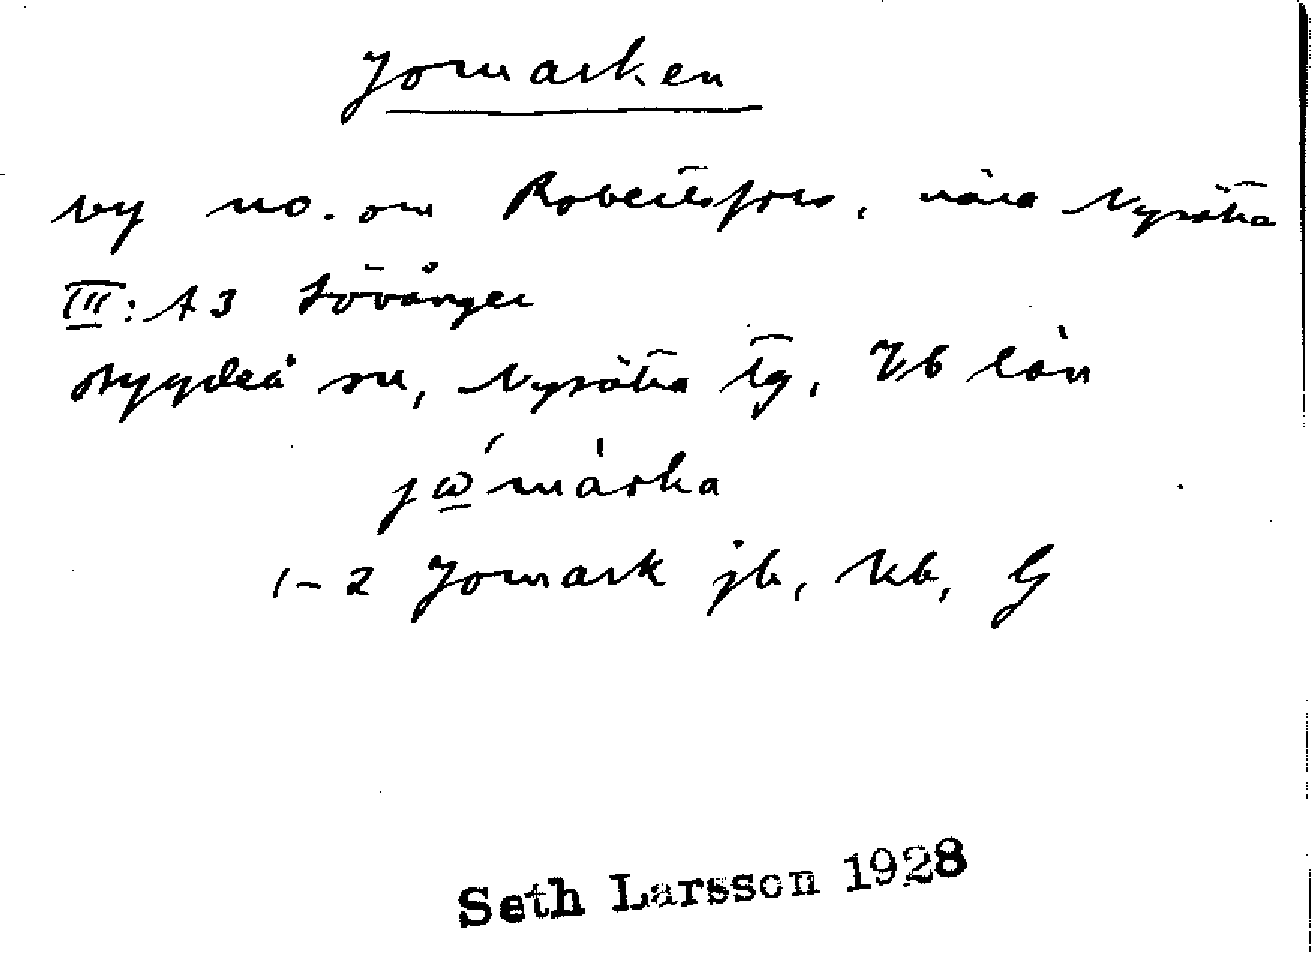 Jomarken
by no. om Robertsfors, nära Nysätra
III: A3 Lövånger
Bygdeå sn, Nysätra tg, Vb län
jώ̲màrka
1-2 Jomark jb, kb, G
Seth Larsson 1928